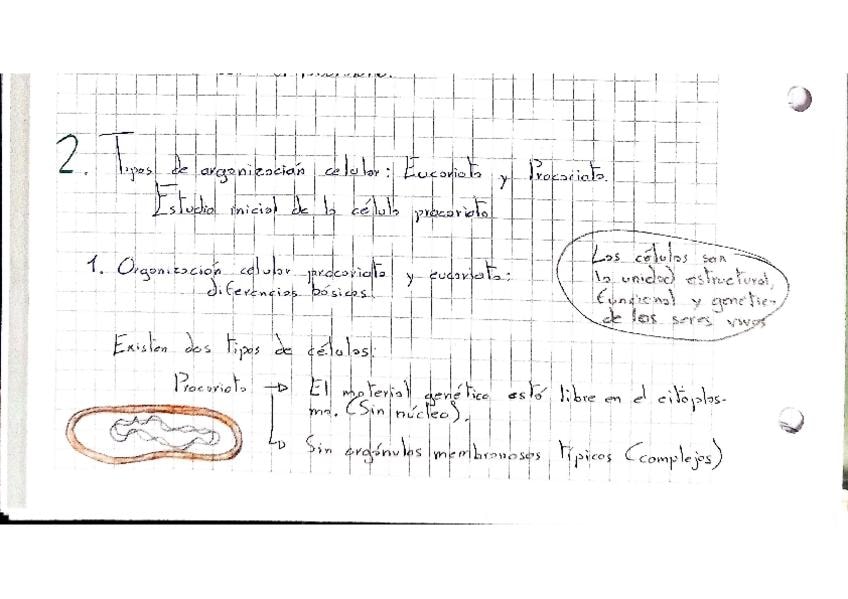 2. Tipos de organización celular: Eucariota y Procariota.
Estudio inicial de la célula procariota
1. Organización celular procariota y eucariota:
diferencias básicas.
Las células son
la unidad estructural,
funcional y genética
de los seres vivos
Existen dos tipos de células:
Procariota → El material genético está libre en el citoplas-
ma. (Sin núcleo).
↳ Sin orgánulos membranosos típicos (complejos)